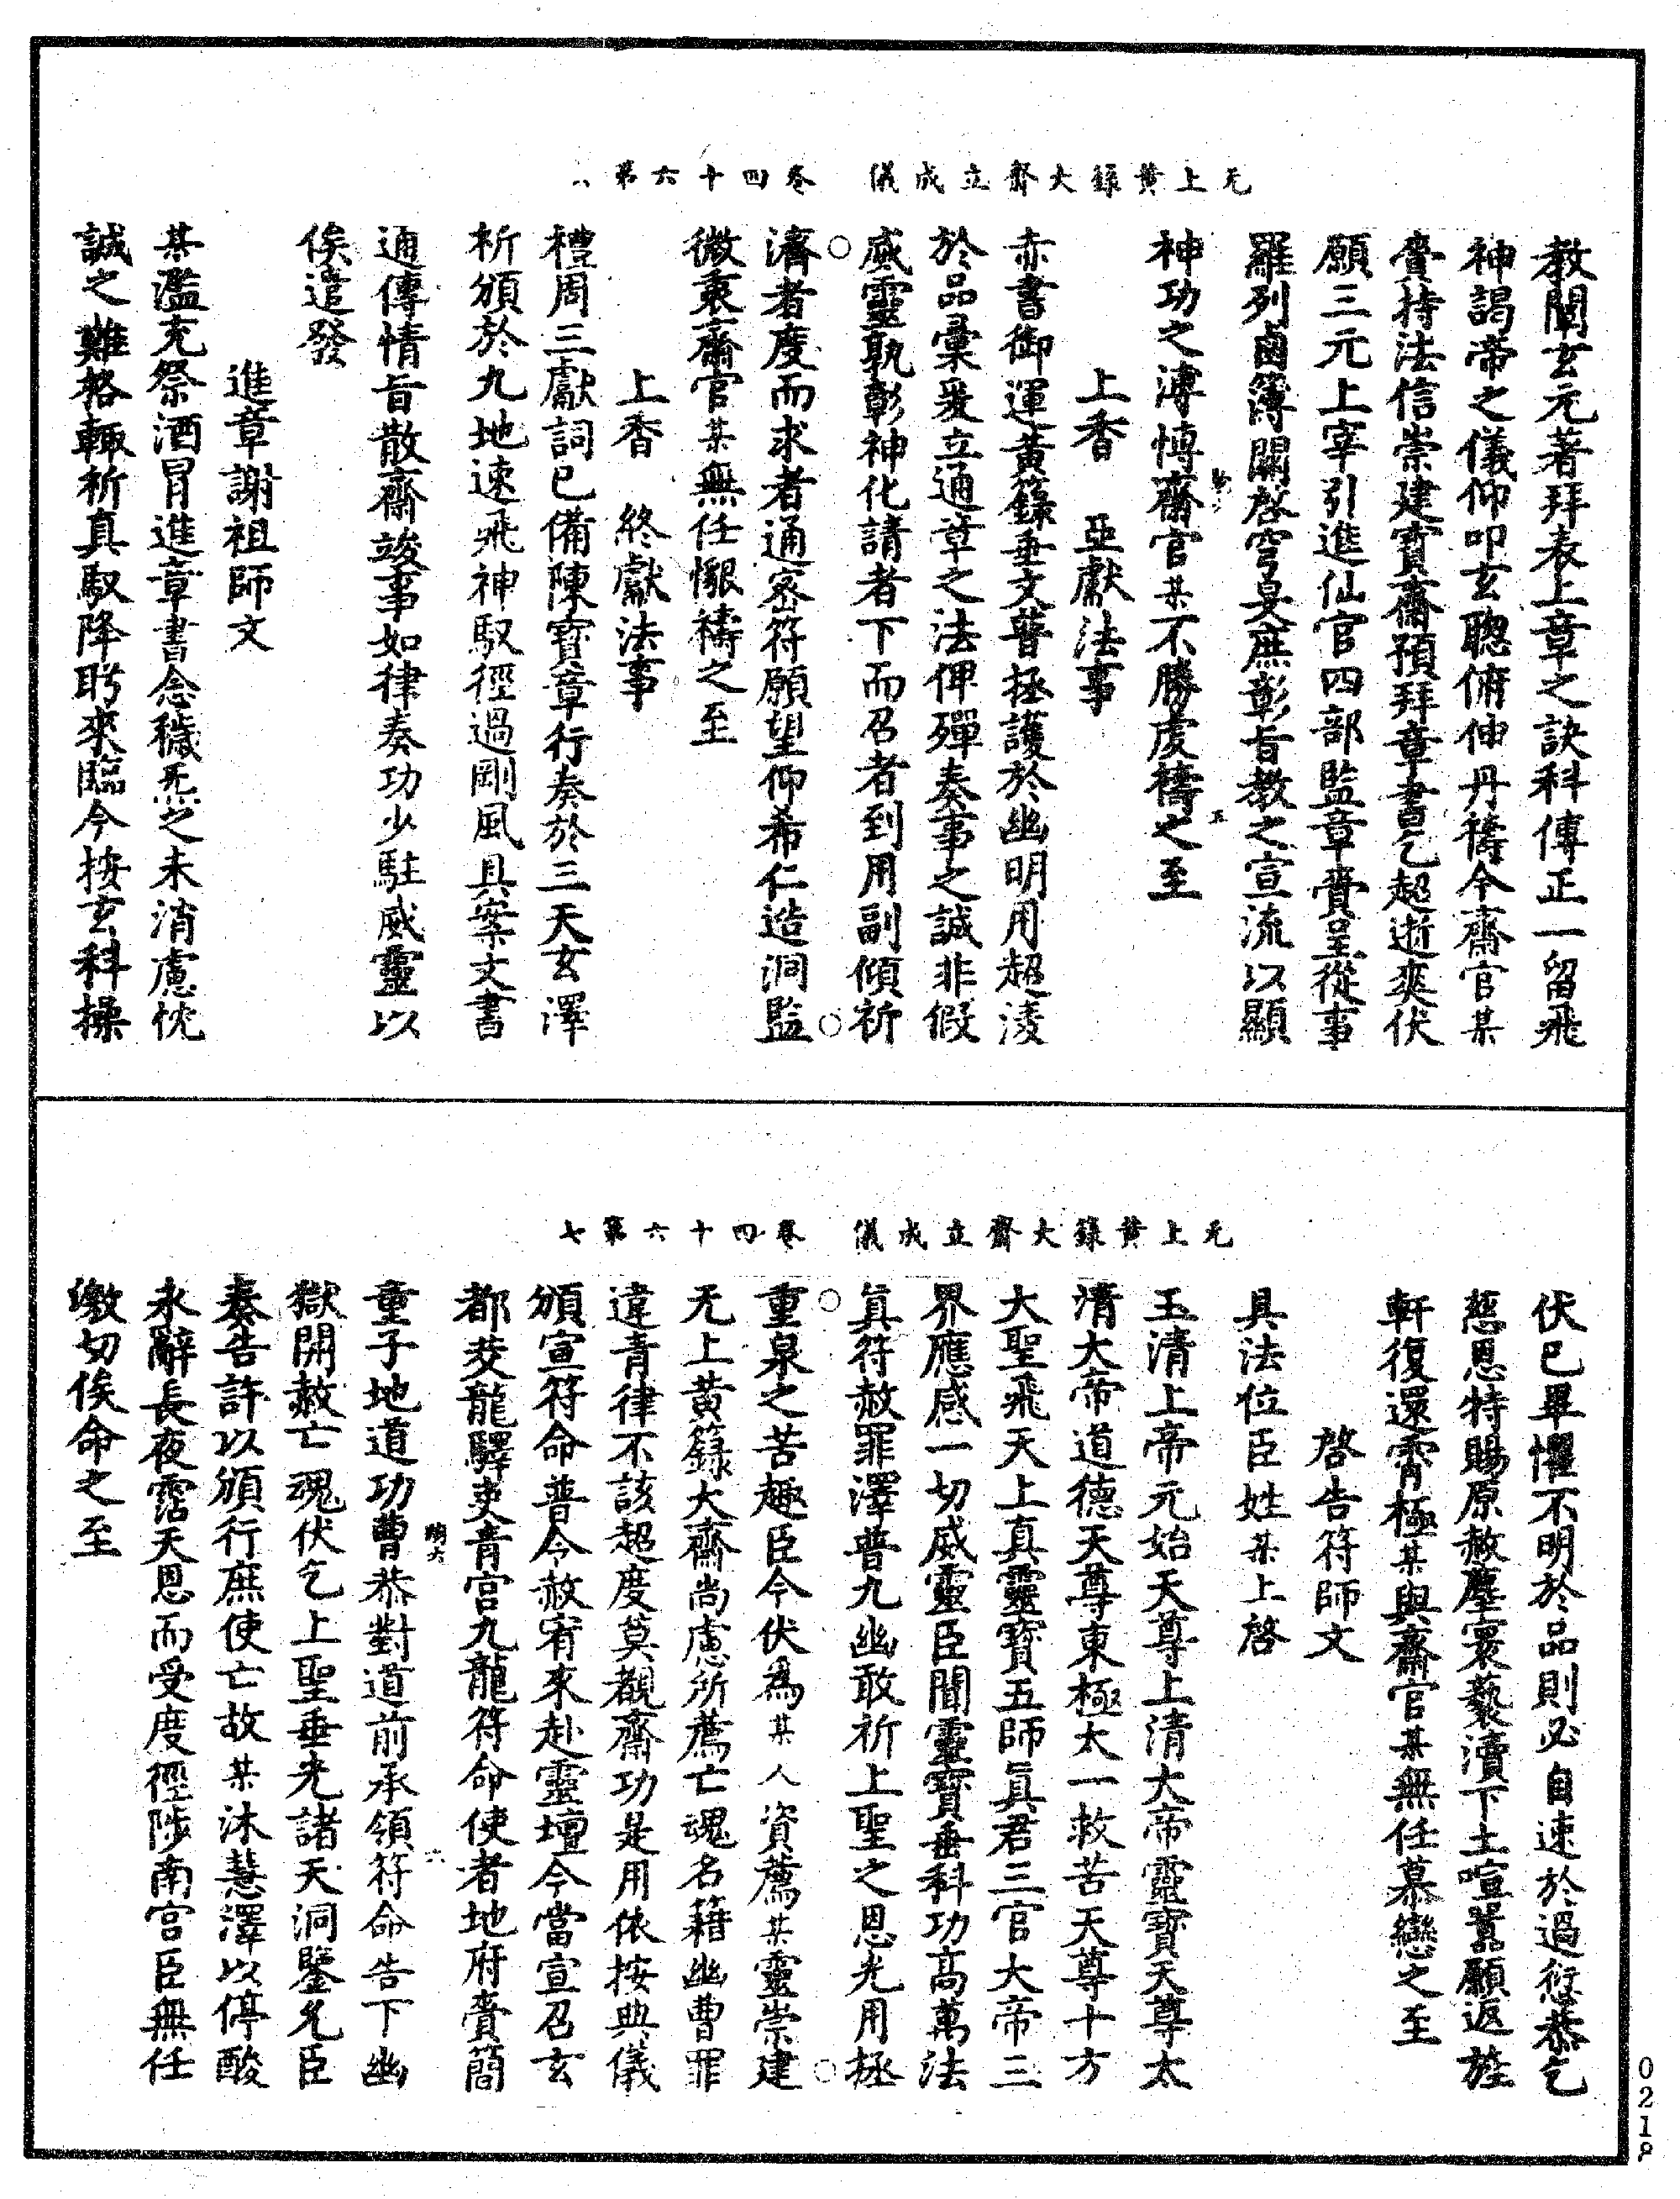 无上黃籙大齋立成儀　卷四十六第六
教闡玄元著拜表上章之訣科傳正一留飛
神謁帝之儀仰叩玄聰俯伸丹禱今齋官某
賫持法信崇建寶齋預拜章書乞超逝爽伏
願三元上宰引進仙官四部監章賫呈從事
羅列鹵簿關啓穹旻庶彰旨教之宣流以顯
神功之溥博齋官某不勝虔禱之至
上香　亞獻法事
赤書御運黃籙垂文普拯護於幽明用超淩
於品彙爰立通章之法俾殫奏事之誠非假
威靈孰彰神化請者下而召者到用副傾祈
濟者度而求者通密符願望仰希仁造洞監
微衷齋官某無任懇禱之至
上香　終獻法事
禮周三獻詞已備陳寶章行奏於三天玄澤
祈頒於九地速飛神馭徑過剛風具案文書
通傳情旨散齋竣事如律奏功少駐威靈以
俟遣發
進章謝祖師文
某濫充祭酒冒進章書念穢炁之未消慮忱
誠之難格輒祈真馭降眄來臨今按玄科操
无上黃籙大齋立成儀　卷四十六第七
伏巳畢懼不明於品則必自速於過衍恭乞
慈恩特賜原赦塵寰褻瀆下土喧囂願返旌
軒復還霄極某與齋官某無任慕戀之至
啓告符師文
具法位臣姓某上啓
玉清上帝元始天尊上清大帝靈寶天尊太
清大帝道德天尊東極太一救苦天尊十方
大聖飛天上真靈寶五師眞君三官大帝三
界應感一切威靈臣聞靈寶垂科功高萬法
眞符赦罪澤普九幽敢祈上聖之恩光用拯
重泉之苦趣臣今伏爲某人資薦某靈崇建
无上黃籙大齋尚慮所薦亡魂名籍幽曹罪
違青律不該超度莫覩齋功是用依按典儀
頒宣符命普令赦宥來赴靈壇今當宣召玄
都茭龍驛吏青宮九龍符命使者地府賫簡
童子地道功曹恭對道前承領符命告下幽
獄開赦亡魂伏乞上聖垂光諸天洞鑒允臣
奏告許以頒行庶使亡故某沐慧澤以停酸
永辭長夜霑天恩而受度徑陟南宮臣無任
激切俟命之至
0218